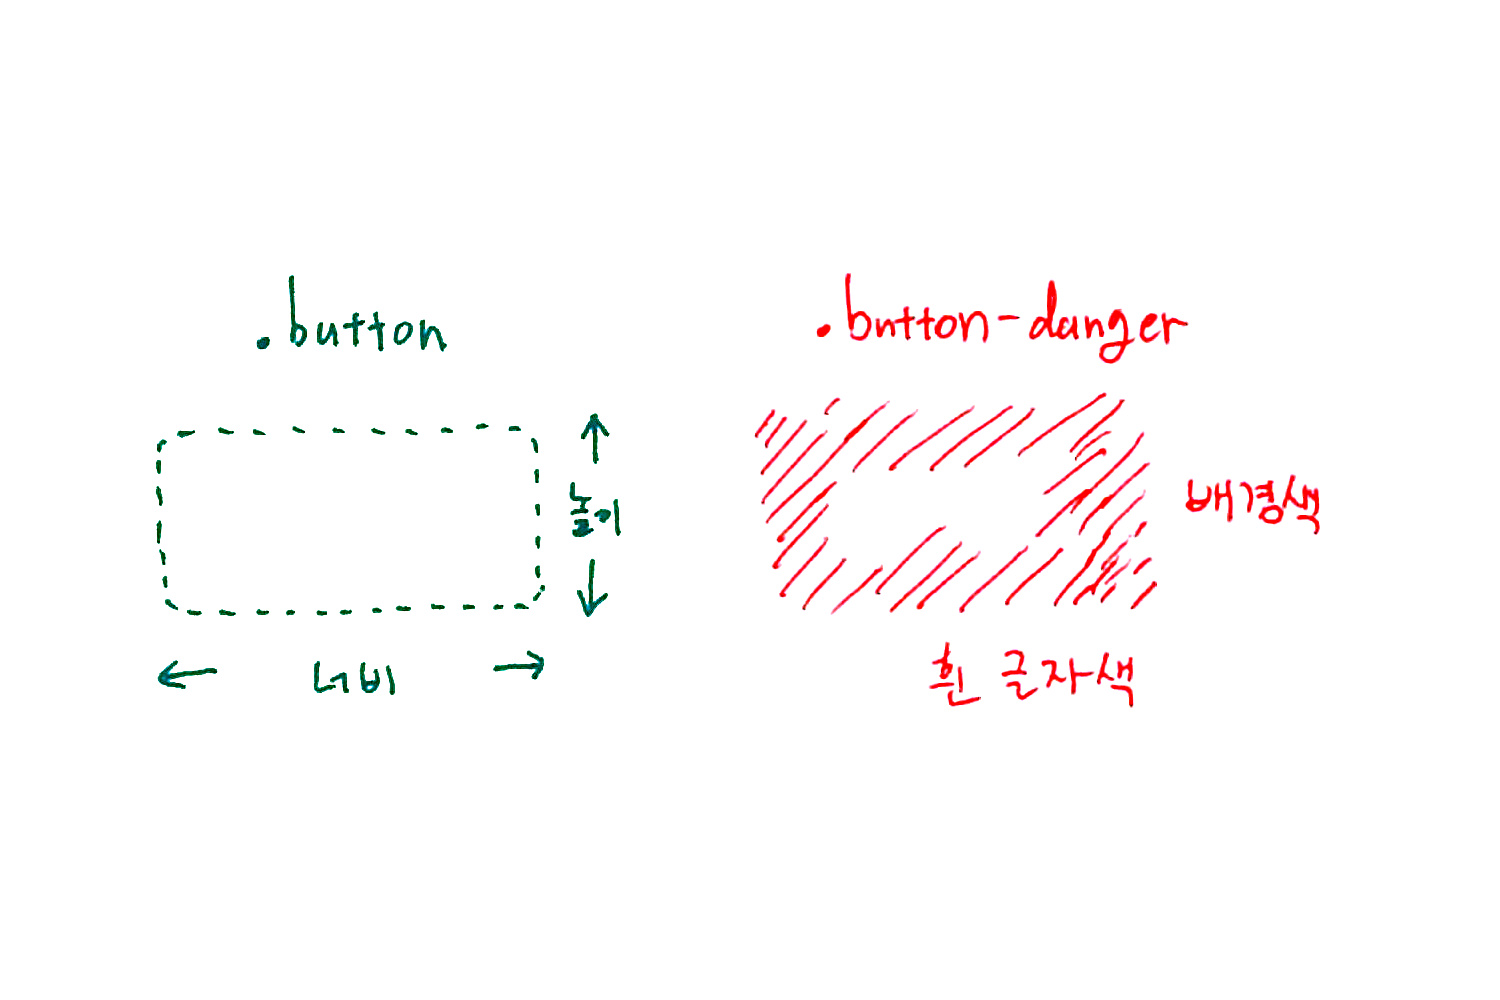 .button
높이
너비
.button-danger
배경색
흰 글자색